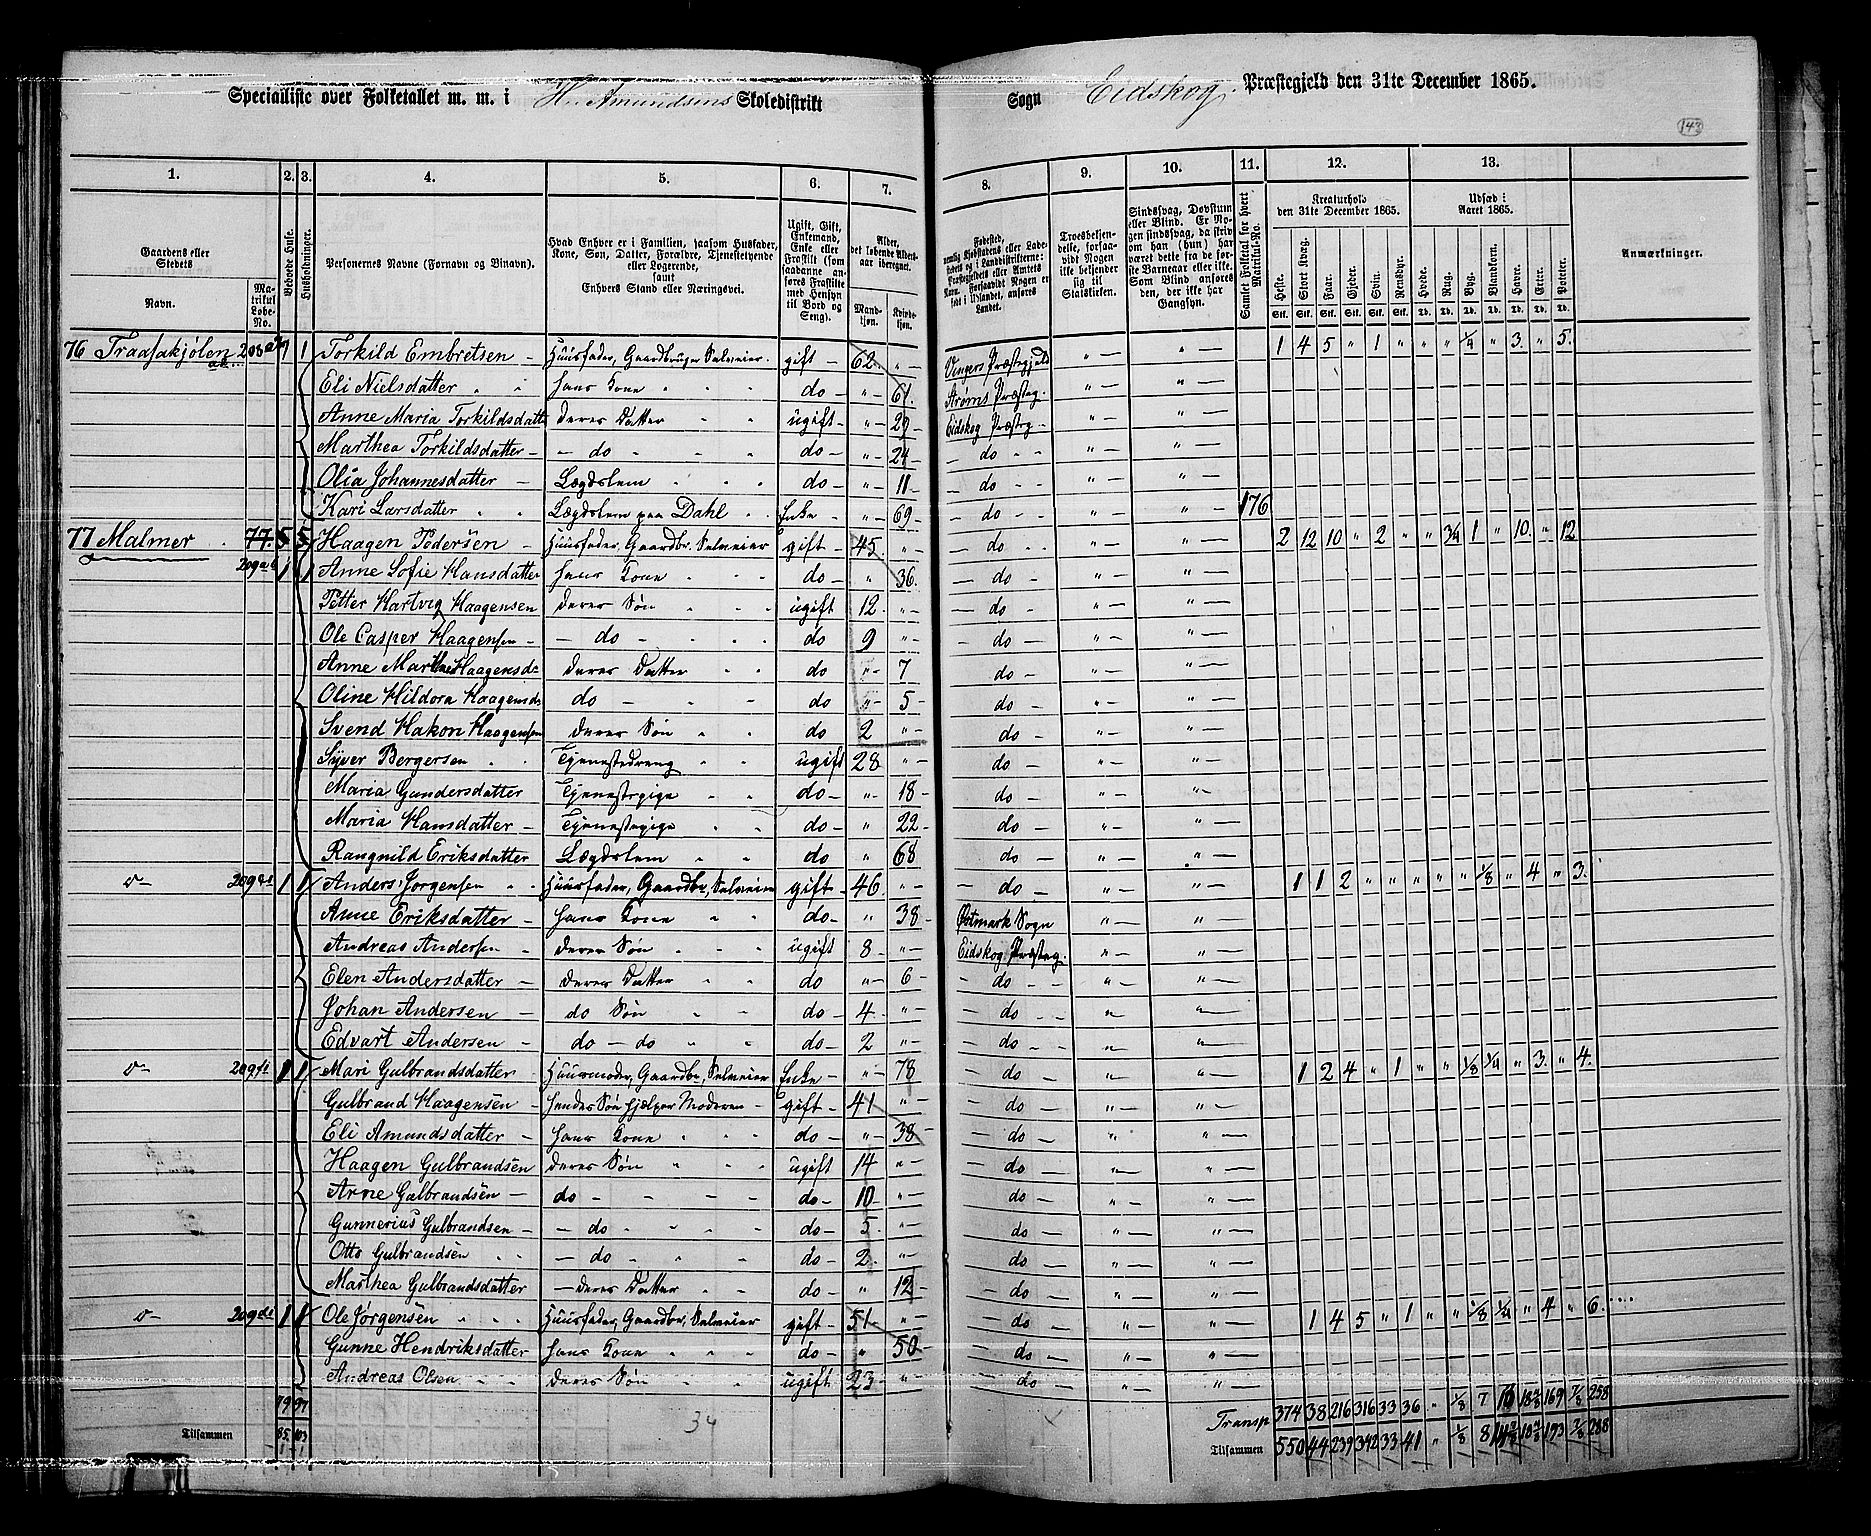 Specialliste over Folketallet m. m. i H. Amundsens Skoledistrikt Sogn Eidskog Præstegjeld den 31te December 1865.
143
1. 2. 3. 4. 5. 6. 7. 8. 9. 10. 11. 12. 13.
Gaardens eller Stedets
Navn. Matrikul Løbe-No.
Beboede Huse.
Husholdninger.
Personernes Navne (Fornavn og Tilnavn).
Hvad Enhver er i Familien, saasom Husfader, Kone, Søn, Datter, Forældre, Tjenestetyende eller Logerende, samt Enhvers Stand eller Næringsvei.
Ugift, Gift, Enkemand, Enke eller Fraskilt (som saadanne anføres Fraskilte med Hensyn til Bord og Seng).
Alder, det løbende Aldersaar iberegnet.
Mandkjøn. Kvindekjøn.
Fødested,
Troesbekjendelse, forsaavidt Nogen ikke bekjender sig til Statskirken.
Sindssvag, Døvstum eller Blind. Er Nogen sindssvag, da skriv om han (hun) har været dette fra de første Barneaar eller ikke. Som Blind anføres den, der ikke har Gangsyn.
Samlet Folketal for hvert Matrikul-No.
Kreaturhold den 31te December 1865.
Udsæd i Aaret 1865.
Anmærkninger.
Heste. Stort Kvæg. Faar. Gjeder. Svin. Rensdyr. Hvede. Rug. Byg. Blandkorn. Havre. Erter. Poteter.
Stk. Stk. Stk. Stk. Stk. Stk. Td. Td. Td. Td. Td. Td. Td.
76 Traasakjølen 208 1 Torkild Embretsen - Huusfader, Gaardbruger Selveier. gift - 62 " - Vingers Præstegjeld " - " - 1 4 5 " 1 " " " 1/4 " 3. " 5.
Eli Nielsdatter " " Hans Kone " " " do - " - 61. Strøms Præsteg. " - " -
Anne Maria Torkildsdatt deres Datter " " ugift - " - 29 - Eidskog Præstg. - " - " -
Marthea Torkildsdatter - - do " - " do - " - 24 - - do " " " - " -
Olia Johannesdatter - Lægdslem " " " do - " - 11 - - do - - " - " -
Kari Larsdatter " " Lægdslem paa Dahl " " Enke - " - 69 - - do - " - " - 176
77 Malmer . 77. 5 5 Haagen Pedersen - Huusfader, Gaardbr. Selveier gift - 45. " - - do - - " - " - 2 12 10 " 2 " " 3/4 1 " 10. " 12
209 1 1 Anne Sofie Hansdatter Hans Kone " " " do - " 36. - do - " - " -
Petter Hartvig Haagensen deres Søn " " " ugift 12. " - - do - " - " -
Ole Casper Haagensen - - do - " " " do 9 " - - do - " - " -
Anne Marthea Haagensd- deres Datter " " do " - 7 do - " - " -
Oline Hildora Haagensd. do - " - do " - 5 - do - " - " -
Svend Hakon Haagensen deres Søn " " do 2 " - do - " - " -
Syver Bergersen " " Tjenestedreng " " ugift 28 " - do - " - " -
Maria Gundersdatter Tjenestepige " " do - " - 18 - do - " - " -
Maria Hansdatter - Tjenestepige " " do - " 22 - do - " - " -
Rangnild Eriksdatter Lægdslem " " do " 68 do - " - " -
o- 209 1 1 Anders Jørgensen " " Huusfader, Gaardbr, Selveier gift - 46 " - - do - " - " - 1 1 2 " " " " " " 1/8 " 4 " 3.
Anne Eriksdatter - Hans Kone " " do - " 38 - Østmark Sogn " - " -
Andreas Andersen - deres Søn " " ugift 8 - " - Eidskog Præsteg. " - " -
Elen Andersdatter - deres Datter " " do " - 6 - - do - - " - " -
Johan Andersen - do Søn " - do - 4. " - - do - - " - " -
Edvart Andersen - do - do " " do - 2 " - - do - - " - " -
o- 209 1 1 Mari Gulbrandsdatter - Huusmoder, Gaardbr, Selveier Enke - " - 78 - do - " - " - 1 2 4 " 1 " " 1/8 1/4 " 3. " 4.
Gulbrand Haagensen - Hendes Søn hjælper Moderen - gift - 41 " - - do - " - " -
Eli Amundsdatter - Hans Kone " " " do - " - 38 - - do - " - " -
Haagen Gulbrandsen deres Søn " " " ugift 14 " - - do - " - " -
Arne Gulbrandsen - do - " - - do - 10 " - - do - " - " -
Gunnerius Gulbrandsen - - do " " " do - 5 " - - do - " - " -
Otto Gulbrandsen " " - do - " " do - 2 " - - do - " - " -
Marthea Gulbrandsdatter - deres Datter " " do - " 12 - - do - " - " -
o- 209 1 1 Ole Jørgensen " " " Huusfader, Gaardbr, Selveier gift - 51 - " - - do - " - " - 1 4 5 " 1 " " 1/8 1/4 " 4 " 6.
Gunne Hendriksdatter Hans Kone " " " do - " 50 - - do - " - " -
Andreas Olsen " " deres Søn " " ugift 23 - " - - do - " - " -
79 97 34 Transp 374 38 216 316 33 36 " 1/8 7 169 7/8 258
Tilsammen 85 103 Tilsammen 550 44 239 342 33 41 " 1/8 8 193 7/8 288